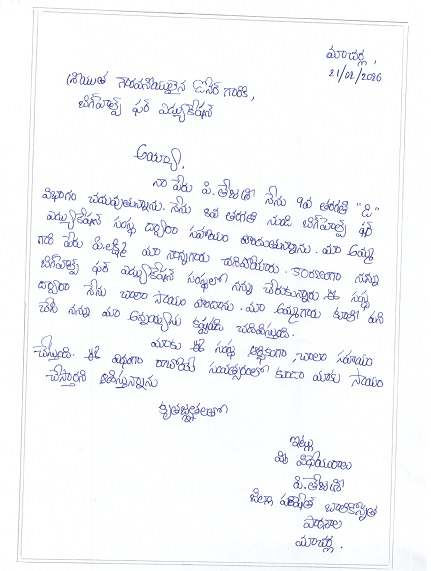 మాచర్ల,
21/02/2026
శ్రీయుత గౌరవనీయులైన డోనర్ గారికి,
బిగ్‌హెల్ప్ ఫర్ ఎడ్యుకేషన్
అయ్యా,
నా పేరు పి. నేను 9వ తరగతి "డి"
విభాగం చదువుతున్నాను. నేను 8వ తరగతి నుండి బిగ్‌హెల్ప్ ఫర్
ఎడ్యుకేషన్ సంస్థ ద్వారా సహాయం పొందుతున్నాను. మా అమ్మ
గారి పేరు పి.లక్ష్మి మా నాన్నగారు చనిపోయారు. నన్ను
బిగ్‌హెల్ప్ ఫర్ ఎడ్యుకేషన్ సంస్థలో నన్ను చేర్చుకున్నారు. ఈ సంస్థ
ద్వారా నేను చాలా సాయం పొందాను. మా అమ్మగారు కూలి పని
చేసి నన్ను మా కష్టపడి చదివిస్తుంది.
మాకు ఈ సంస్థ ఆర్థికంగా చాలా సహాయం
చేస్తుంది. ఈ విధంగా రాబోయే సంవత్సరంలో కూడా మాకు సాయం
చేస్తారని ఆశిస్తున్నాను
కృతజ్ఞతలతో
ఇట్లు
మీ విధేయురాలు
పి.
జిల్లా పరిషత్ బాలికోన్నత
పాఠశాల
మాచర్ల.